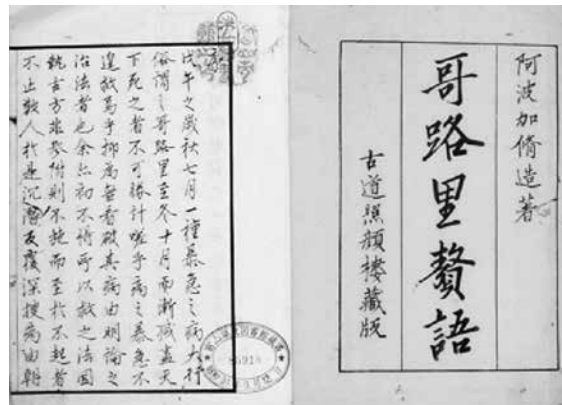 阿波加脩造著
哥路里贅語
古道照顔樓藏版
戊午之歳秋七月一種暴急之病大行
俗謂之哥路里至冬十月而漸減蓋天
下死之者不可勝計嗟乎病之暴急不
遑救焉乎抑為無看破其病由明論之
治法者也余亦初不悟所以救之法因
執古方非附則不施而至於不起者
不止數人於是沉潛反覆深搜病由朝